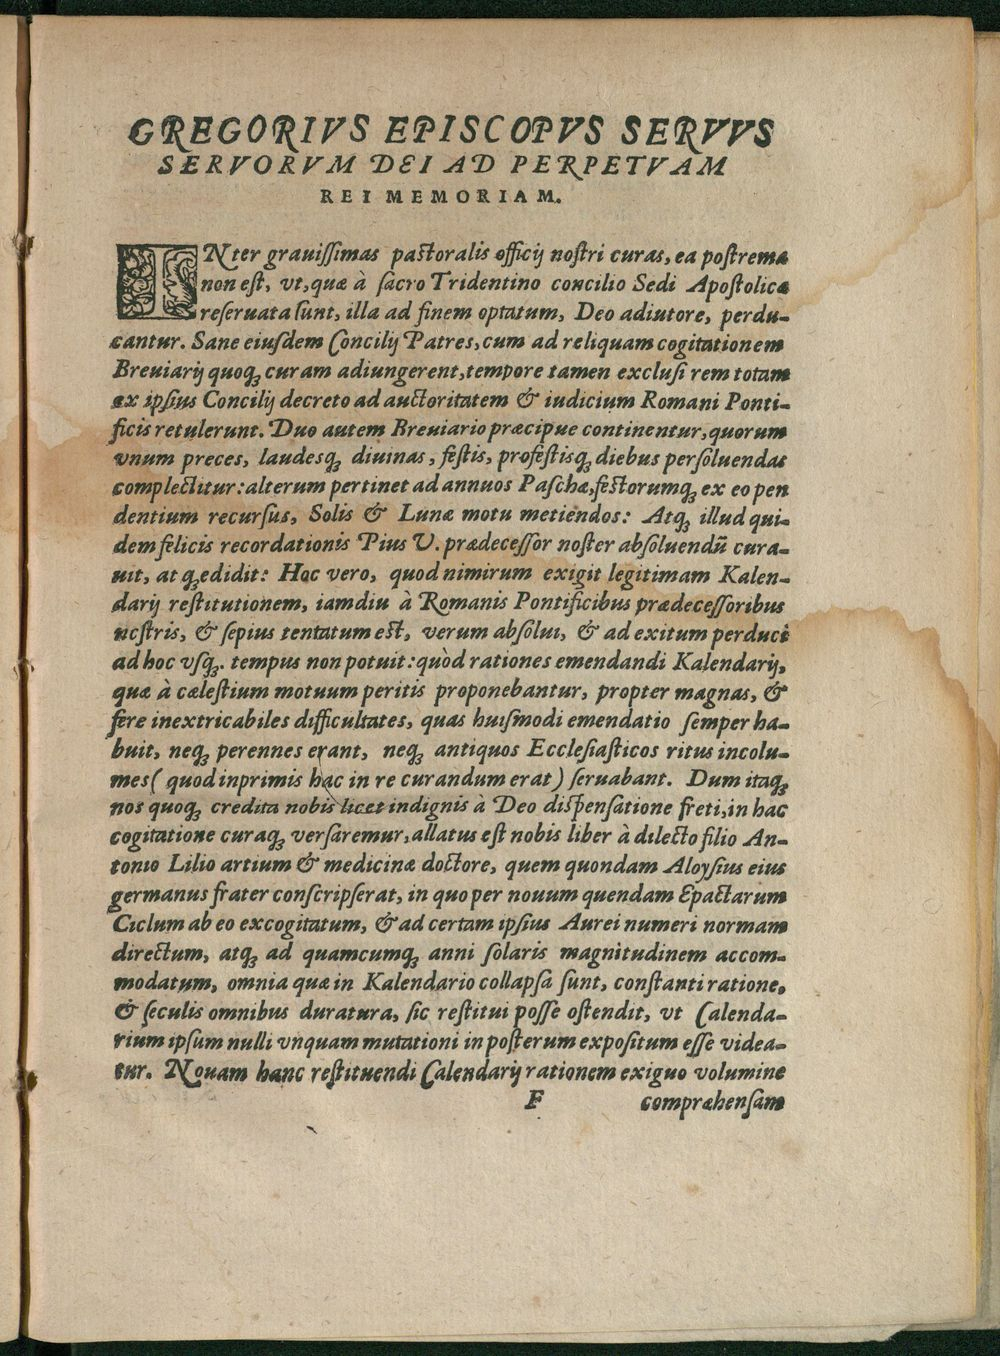 GREGORIVS EPISCOPVS SERVVS
SERVORVM DEI AD PERPETVAM
REI MEMORIAM.
INter grauiſſimas paſtoralis officij noſtri curas, ea poſtrema
non eſt, vt, quæ à ſacro Tridentino concilio Sedi Apoſtolicæ
reſeruata ſunt, illa ad finem optatum, Deo adiutore, perdu-
cantur. Sane eiuſdem Concilij Patres, cum ad reliquam cogitationem
Breuiarij quoqꝫ curam adiungerent, tempore tamen excluſi rem totam
ex ipſius Concilij decreto ad auctoritatem & iudicium Romani Ponti-
ficis retulerunt. Duo autem Breuiario præcipue continentur, quorum
vnum preces, laudesqꝫ diuinas, feſtis, profeſtisqꝫ diebus perſoluendas
complectitur: alterum pertinet ad annuos Paſchæ, feſtorumqꝫ ex eo pen
dentium recurſus, Solis & Lunæ motu metiendos: Atqꝫ illud qui-
dem felicis recordationis Pius V. prædeceſſor noſter abſoluendũ cura-
uit, atqꝫ edidit: Hoc vero, quod nimirum exigit legitimam Kalen-
darij reſtitutionem, iamdiu à Romanis Pontificibus prædeceſſoribus
noſtris, & ſepius tentatum eſt, verum abſolui, & ad exitum perduci
ad hoc vſqꝫ. tempus non potuit: quòd rationes emendandi Kalendarij,
quæ à cæleſtium motuum peritis proponebantur, propter magnas, &
fere inextricabiles difficultates, quas huiſmodi emendatio ſemper ha-
buit, neqꝫ perennes erant, neqꝫ antiquos Eccleſiaſticos ritus incolu-
mes (quod inprimis hac in re curandum erat) ſeruabant. Dum itaqꝫ
nos quoqꝫ credita nobis licet indignis à Deo diſpenſatione freti, in hac
cogitatione curaqꝫ verſaremur, allatus eſt nobis liber à dilecto filio An-
tonio Lilio artium & medicinæ doctore, quem quondam Aloyſius eius
germanus frater conſcripſerat, in quo per nouum quendam Epactarum
Ciclum ab eo excogitatum, & ad certam ipſius Aurei numeri normam
directum, atqꝫ ad quamcumqꝫ anni ſolaris magnitudinem accom-
modatum, omnia quæ in Kalendario collapſa ſunt, conſtanti ratione,
& ſeculis omnibus duratura, ſic reſtitui poſſe oſtendit, vt Calenda-
rium ipſum nulli vnquam mutationi in poſterum expoſitum eſſe videa-
tur. Nouam hanc reſtituendi Calendarij rationem exiguo volumine
F compræhenſam